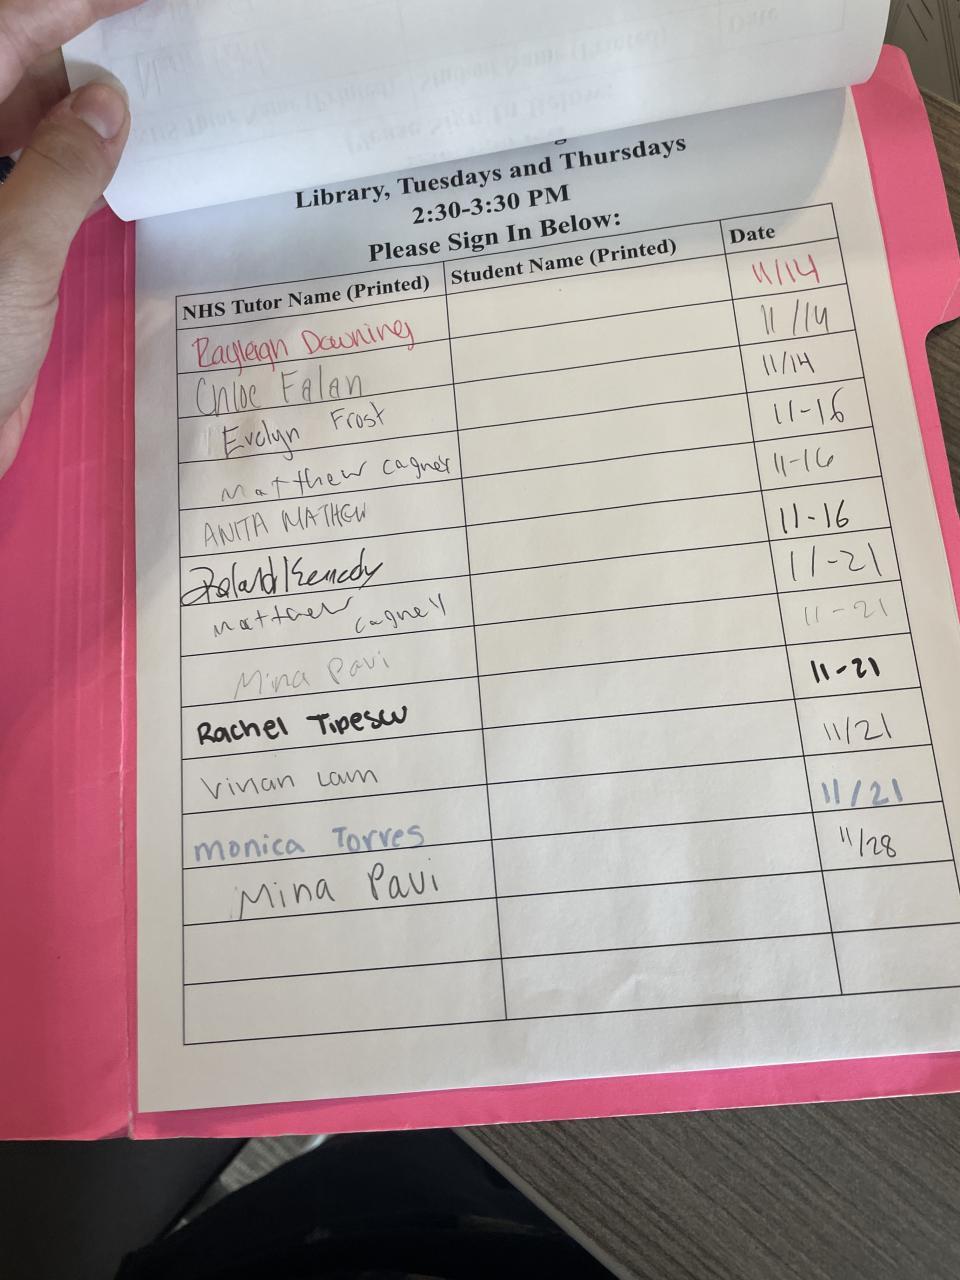 Library, Tuesdays and Thursdays
2:30-3:30 PM
Please Sign In Below:
NHS Tutor Name (Printed) Student Name (Printed) Date
Rayleigh Downing 11/14
Chloe Falan 11/14
Evelyn Frost 11/14
Matthew Cagney 11-16
ANITA MATHEW 11-16
Kennedy 11-16
Matthew Cagney 11-21
Mina Pavi 11-21
Rachel Tipescu 11-21
Vivian Lam 11/21
Monica Torres 11/21
Mina Pavi 11/28